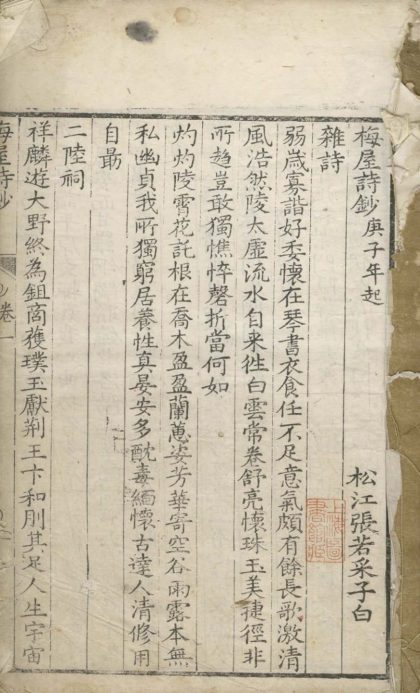 梅屋詩鈔庚子年起
松江張若采子白
雜詩
弱歲寡諧好委懷在琴書衣食任不足意氣頗有餘長歌激清
風浩然陵太虛流水自来徃白雲常卷舒亮懷珠玉美捷徑非
所趋豈敢獨憔悴磬折當何如
灼灼陵霄花託根在喬木盈盈蘭蕙姿芳華寄空谷雨露本無
私幽貞我所獨窮居養性真晏安多酖毒緬懷古達人清修用
自勗
二陸祠
祥麟遊大野終為鉏商獲璞玉獻荆王卞和刖其足人生宇宙
梅屋詩鈔
卷一